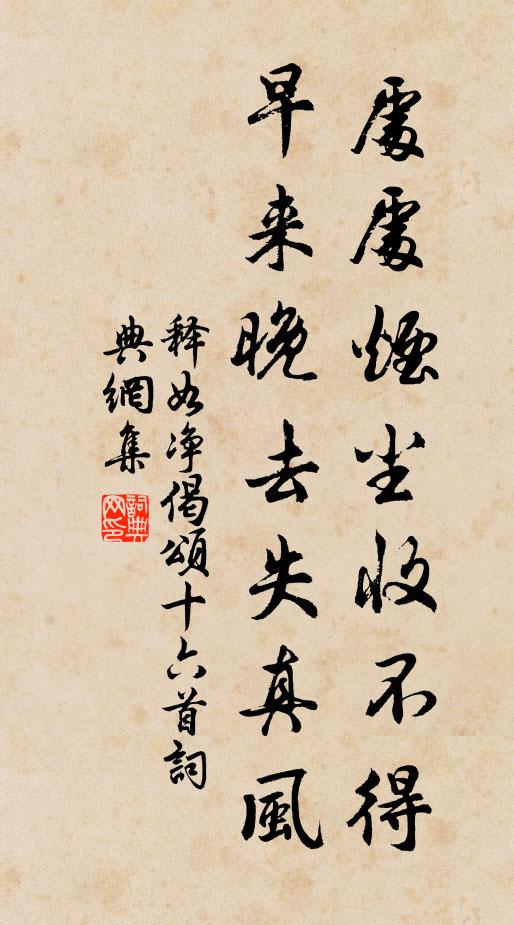 處處煙尘收不得
早来晚去失真風
释如净偈頌十六首詞
典網集
詞典网印